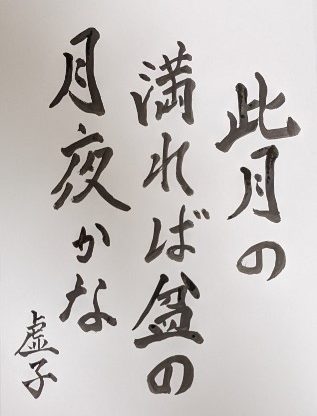 此月の
満れば盆の
月夜かな
虚子